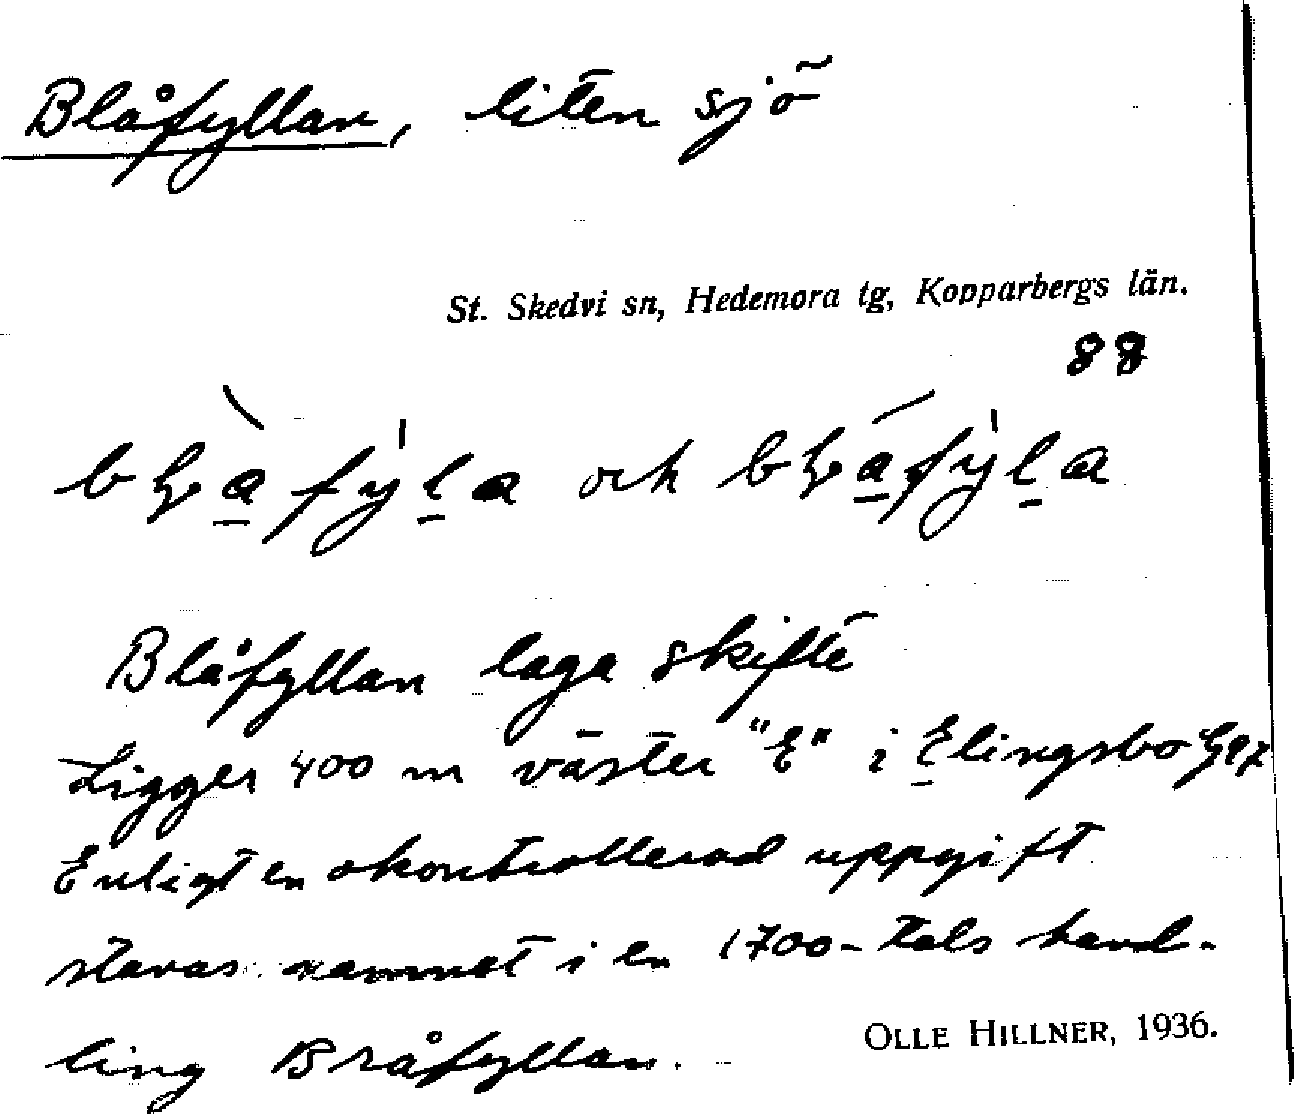 Blåfyllan, liten sjö
St. Skedvi sn, Hedemora tg, Kopparbergs län.
88
och
Blåfyllan laga skifte
Ligger 400 m väster "E" i Elingsbo
Enligt en okontrollerad uppgift
stavas namnet i en 1700-tals hand-
ling Bråfyllan.
OLLE HILLNER, 1936.